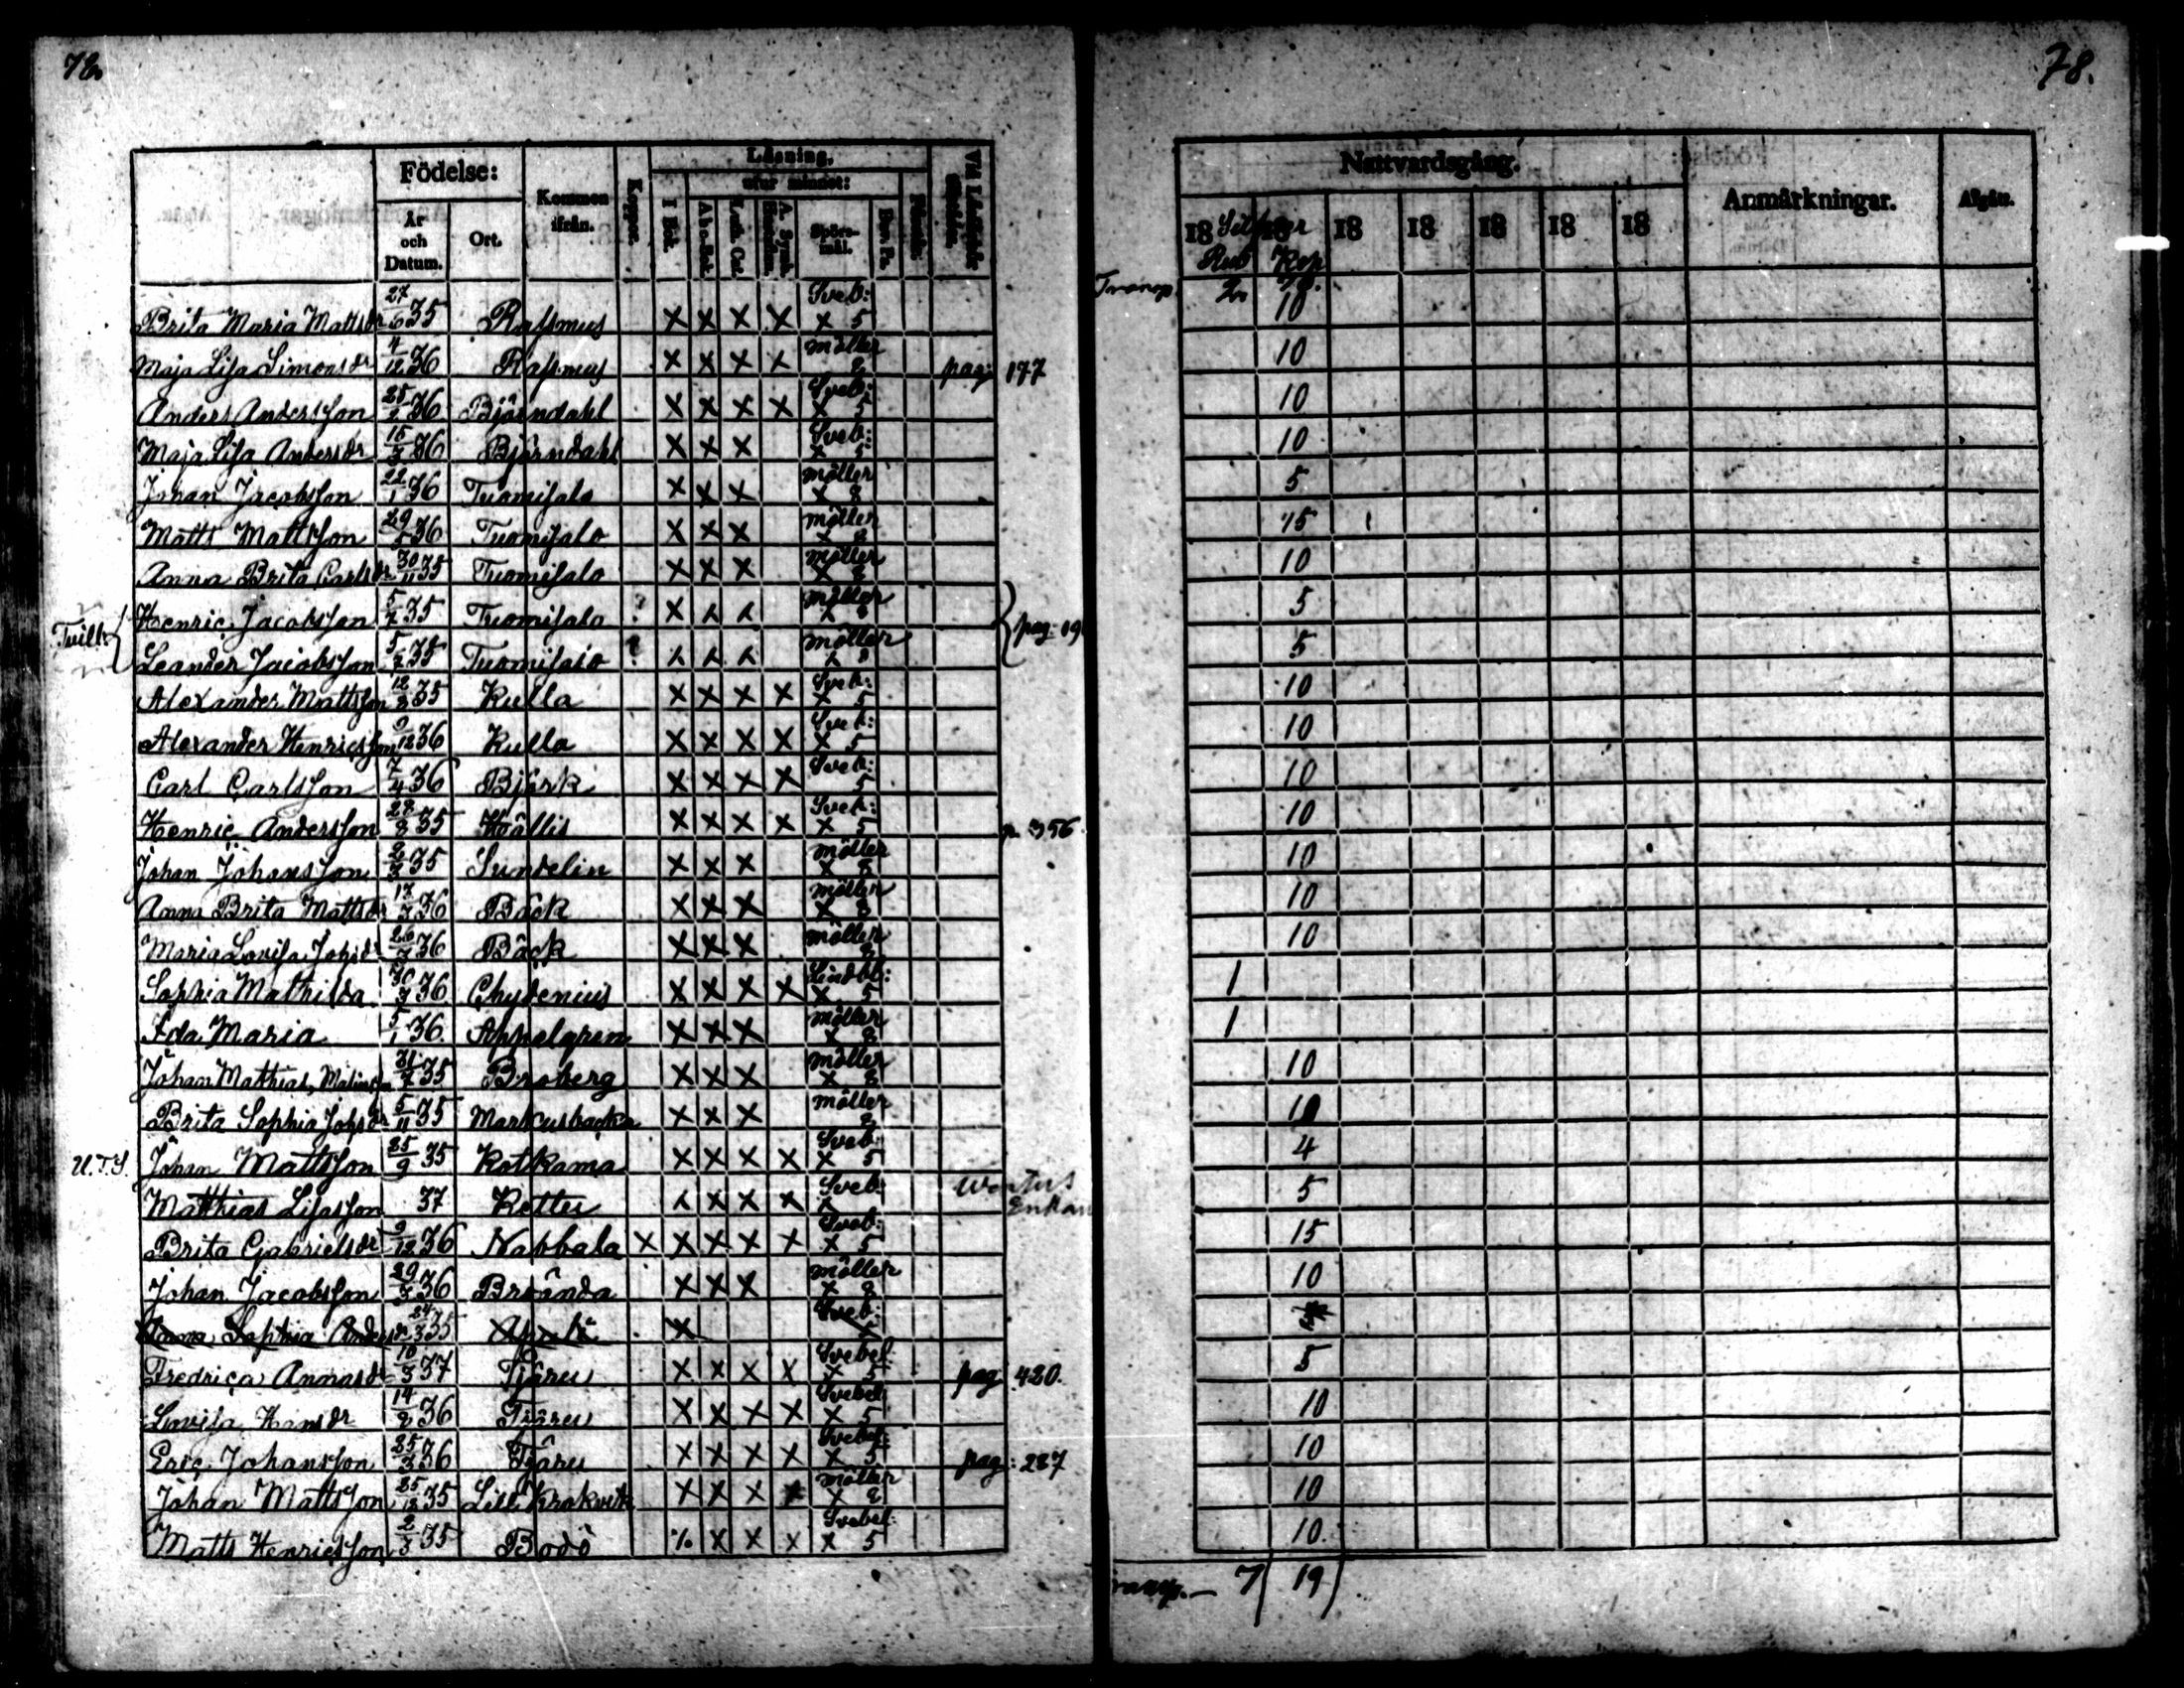 78.
78.
Födelse:
År och Datum.
Ort.
Kommen ifrån.
Koppor.
Läsning.
utur minnet:
I Bok.
A b c-Bok.
Luth. Cat.
Spörs-mål.
Nattvardsgång.
Anmärkningar.
Afgått.
18 18 18 18 18 18 18
Silfver
Rub Kop
Transp. 2 78.
Brita Maria Mattsdr 27/6 35 Rassmus x x x x Sveb: x 5 10
Maja Lisa Simonsdr 4/12 36 Rassmus x x x x möller 8 pag: 177 10
Anders Andersson 25/2 36 Björndahl x x x x Sveb: x 5 10
Maja Lisa Andersdr 15/7 36 Björndahl x x x Sveb: x 5 10
Johan Jacobsson 22/1 36 Tuomisalo x x x möller x 8 5
Matts Mattsson 29/5 36 Tuomisalo x x x möller x 8 15
Anna Brita Carlsdr 30/11 35 Tuomisalo x x x möller x 8 10
Tvill:
Henric Jacobsson 5/7 35 Tuomisalo ? x x x möller x 8 5
pag: 19
Leander Jacobsson 5/7 35 Tuomisalo ? x x x möller x 8 5
Alexander Mattsson 12/8 35 Kulla x x x x Sveb: x 5 10
Alexander Henricsson 9/12 36 Kulla x x x x Sveb: x 5 10
Carl Carlsson 7/4 36 Björk x x x x Sveb: 5 10
Henric Andersson 28/8 35 Hällis x x x x Sveb: x 5 p. 356 10
Johan Johansson 2/3 35 Sundelin x x x möller x 8 10
Anna Brita Mattsdr 17/7 36 Bäck x x x möller x 8 10
Maria Lovisa Johsdr 26/7 36 Bäck x x x möller 8 10
Sophia Mathilda 30/3 36 Chydenius x x x x Lindbl: x 5 1
Ida Maria 5/1 36. Appelgren x x x möller x 8 1
Johan Mathias, 31/7 35 Broberg x x x möller x 8 10
Brita Sophia Johsdr 5/11 35 Markusbacka x x x möller 8 10
U.T.S. Johan Mattsson 25/9 35 Kotkama x x x x Sveb: x 5 4
Matthias Lisasson 37 Kettu x x x x Sveb: x 5
Brita Gabrielsdr 9/12 36 Nabbala x x x x x Sveb: x 5 15
Johan Jacobsson 29/7 36 Brända x x x möller x 8 10
Anna Sophia Andersdr 24/3 35 x Sveb:
Fredrica Annasdr 10/3 37 Tjäru x x x x Svebel x 5 pag. 420. 5
Lovisa Hansdr 14/2 36 Tjäru x x x x Svebel x 5 10
Eric Johansson 25/3 36 Tjäru x x x x Svebel: x 5 pag: 287 10
Johan Mattsson 25/12 35 Lill Krokvik x x x x möller x 8 10
Matts Henricsson 2/3 35 Bodö x x x x Svebel: x 5 10.
Transp. — 7 19